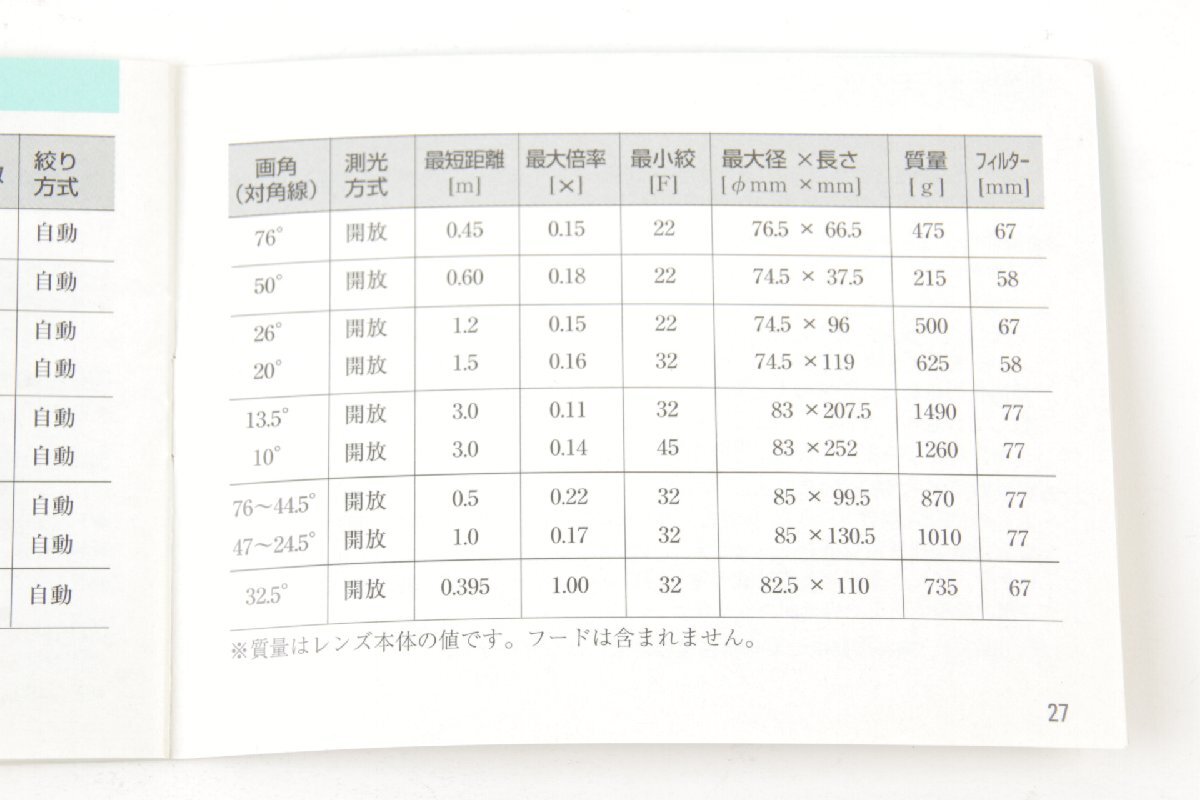 絞り
方式
自動
自動
自動
自動
自動
自動
自動
自動
自動
画角 測光 最短距離 最大倍率 最小絞 最大径 ×長さ 質量 フィルター
(対角線) 方式 [m] [×] [F] [φmm ×mm] [g] [mm]
76° 開放 0.45 0.15 22 76.5 × 66.5 475 67
50° 開放 0.60 0.18 22 74.5 × 37.5 215 58
26° 開放 1.2 0.15 22 74.5 × 96 500 67
20° 開放 1.5 0.16 32 74.5 ×119 625 58
13.5° 開放 3.0 0.11 32 83 ×207.5 1490 77
10° 開放 3.0 0.14 45 83 ×252 1260 77
76~44.5° 開放 0.5 0.22 32 85 × 99.5 870 77
47~24.5° 開放 1.0 0.17 32 85 ×130.5 1010 77
32.5° 開放 0.395 1.00 32 82.5 × 110 735 67
※質量はレンズ本体の値です。フードは含まれません。
27